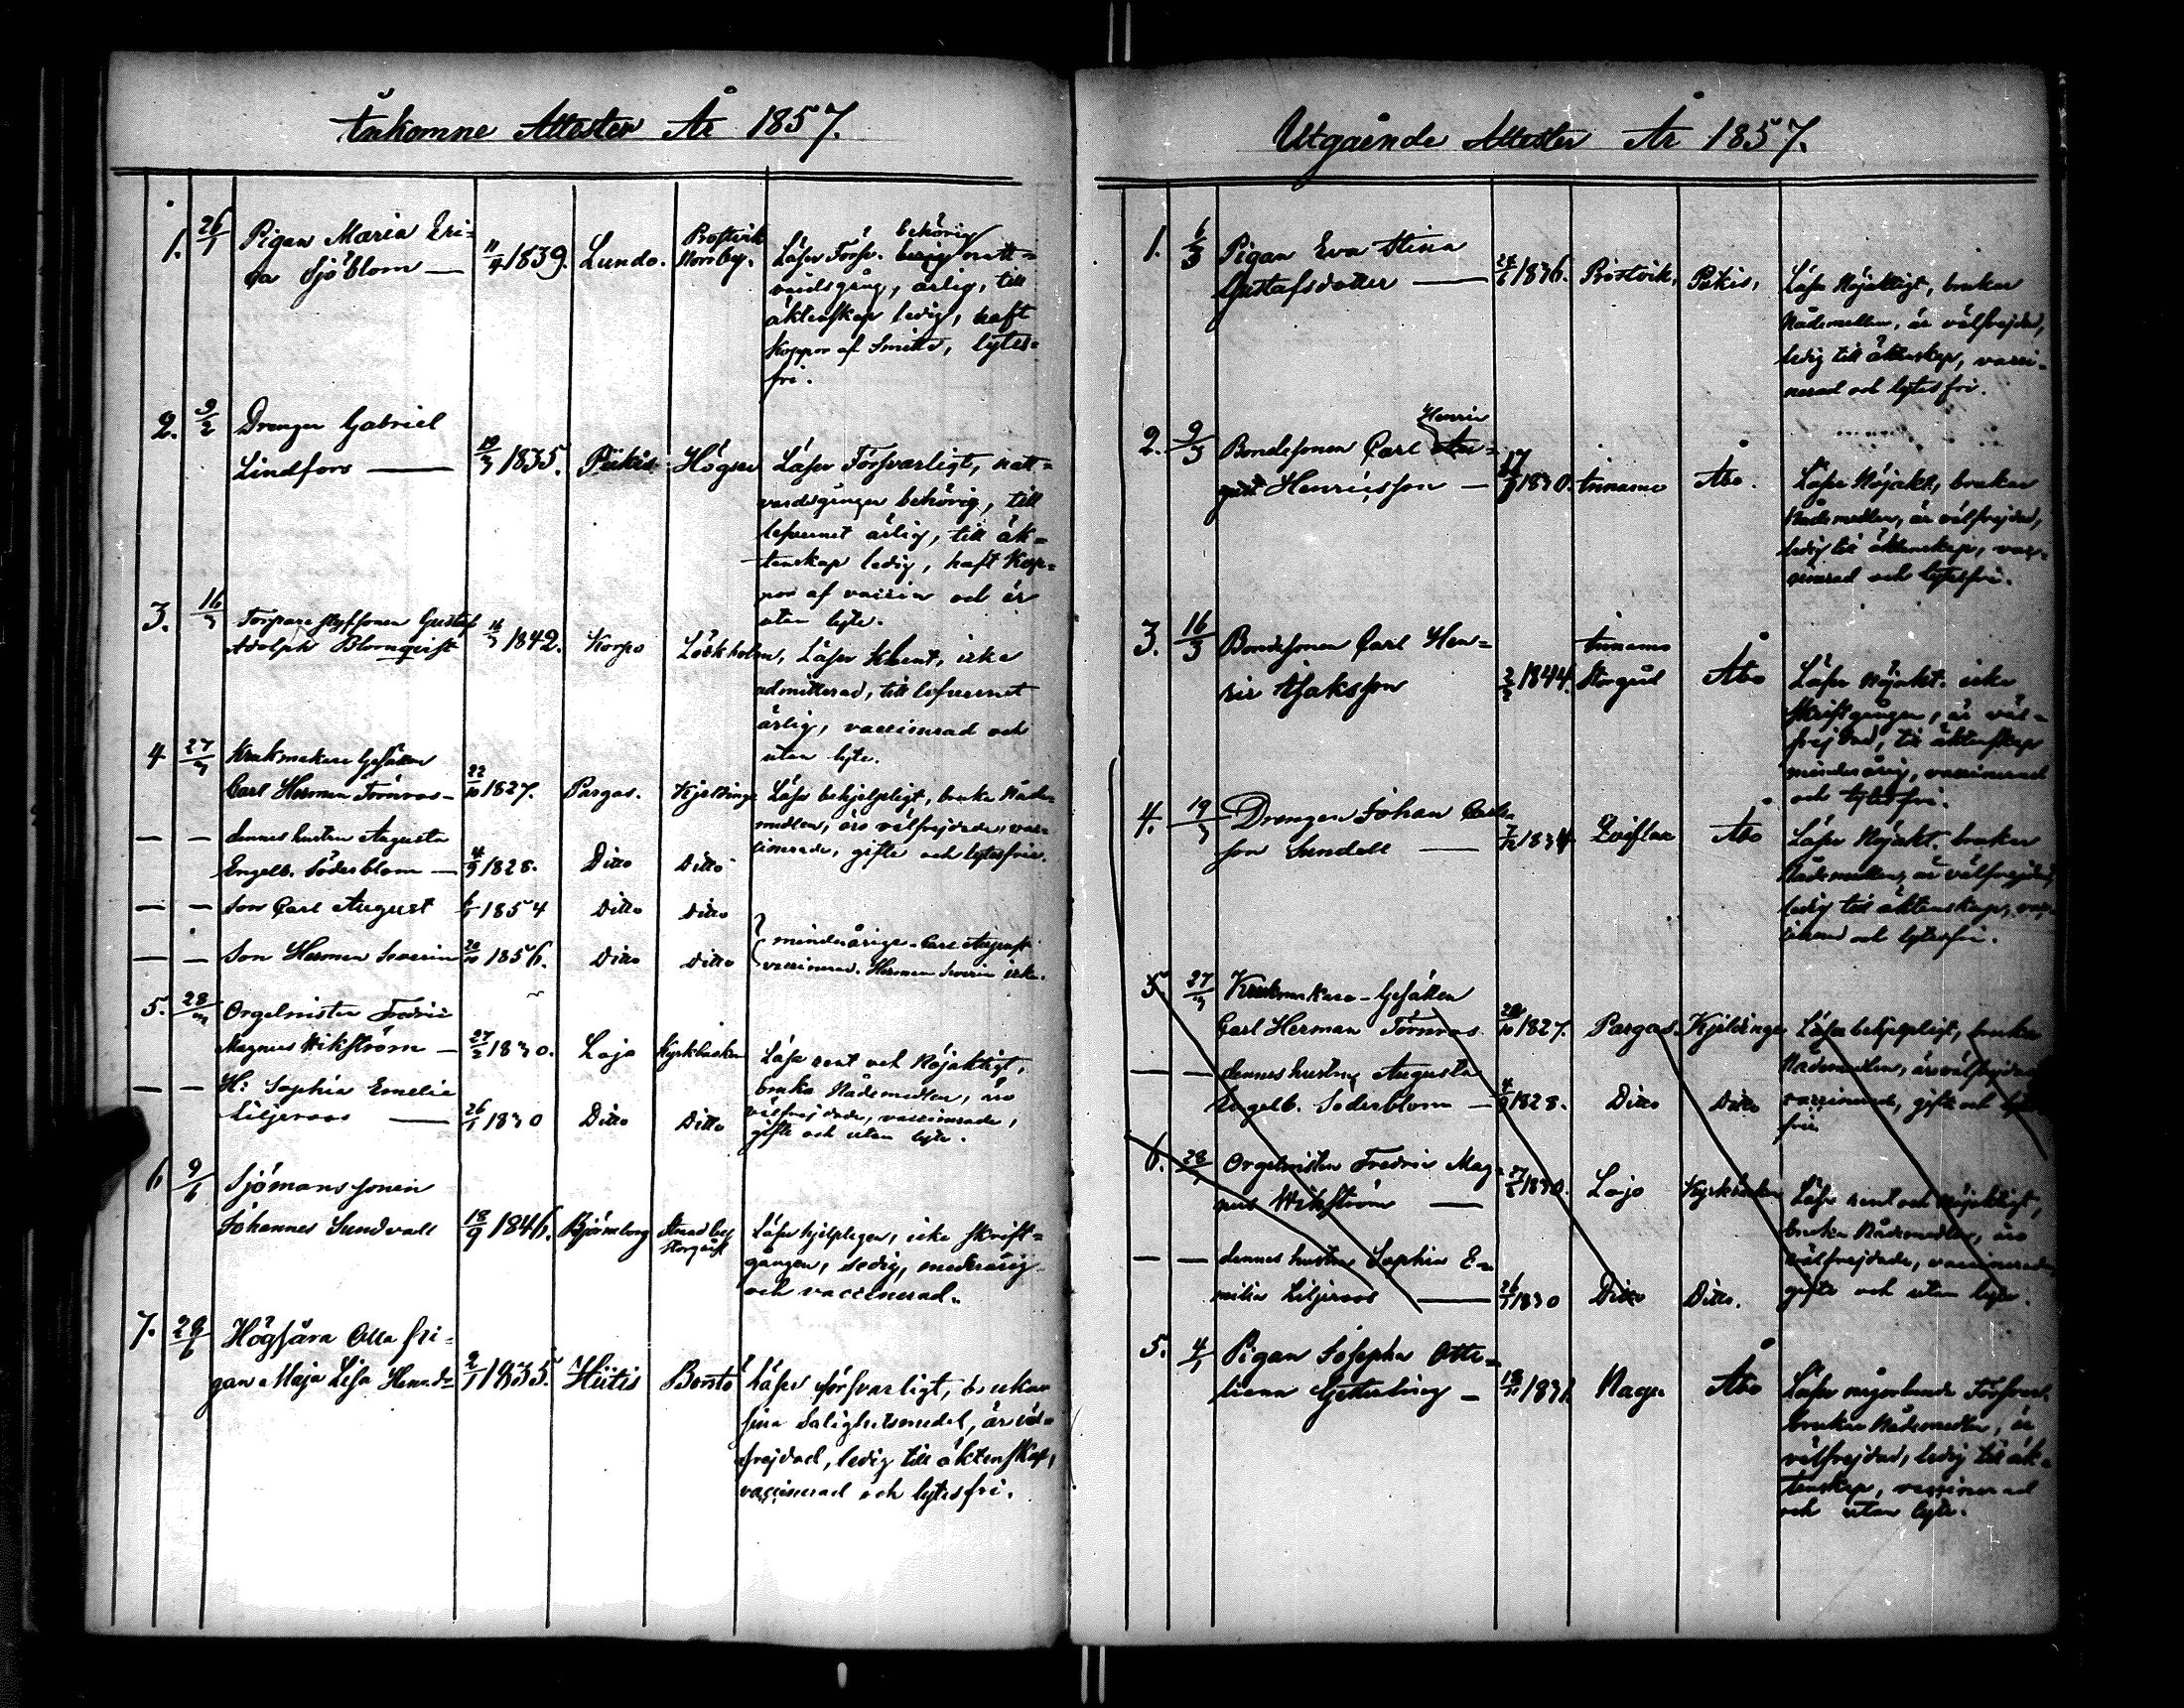 Inkomne Attester År 1857.
1. 26/1 Pigan Maria Eri-
ca Sjöblom — 11/4 1839. Lundo. Prostvik Norrby.
Läser Försv. behörig natt-
vardsgång, ärlig, till
äktenskap ledig, haft
Koppor af Smitta, lytes-
fri.
2. 9/2 Drengen Gabriel
Lindfors — 19/3 1835. Piikis Högsar Läser Försvarligt, natt-
vardsgången behörig, till
lefvernet ärlig, till äk-
tenskap ledig, haft Kop-
por af vaccin och är
utan lyte.
3. 16/3 Torpare styfsonen Gustaf
Adolph Blomqvist 16/3 1842. Korpo Lökholm, Läser Klent, icke
admitterad, till lefvernet
ärlig, vaccinerad och
utan lyte.
4 27/3 Krukmakare Gesällen
Carl Herman Törnroos — 22/10 1827. Pargas. Kjeldinge Läser behjelpligt, bruka Nåde-
medlen, äro välfrejdade, vac-
cinerade, gifte och lytesfria.
— — dennes hustru Augusta
Engelb. Söderblom — 4/9 1828. Ditto Ditto
— — Son Carl August 1854 Ditto Ditto
— — Son Herman Severin 20/10 1856. Ditto Ditto
minderårige. Carl August
vaccinerad. Herman Severin icke.
5. 28/3 Orgelnisten Fredric
Magnus Wikström — 27/2 1830. Lojo Kyrkbacken Läsa rent och Nöjaktigt,
bruka Nådemedlen, äro
välfrejdade, vaccinerade,
gifte och utan lyte.
— — H: Sophia Emelie
Liljeroos — 26/1 1830 Ditto Ditto
6 9/6 Sjömanssonen
Johannes Sundvall 18/9 1846. Björneborg Storgård Läser hjelpligen, icke skrift-
gången, ledig, minderårig
och vaccinerad.
7. 29/6 Högsåra Olla pi-
gan Maja Lisa Henr.dr 2/1 1835. Hiitis Borstö Läser försvarligt, brukar
sina Salighetsmedel, är väl-
frejdad, ledig till äktenskap,
vaccinerad och lytesfri.
Utgående Attester År 1857.
1. 6/3 Pigan Eva Stina
Gustafsdotter — 24/6 1836. Prostvik, Pikis, Läser Nöjaktigt, brukar
Nådemedlen, är välfrejdad,
ledig till äktenskap, vacci-
nerad och lytesfri.
2. 9/3 Bondesonen Carl Henric
Henricsson — 1830. Innamo Åbo. Läser Nöjakt, brukar
Nådemedlen, är välfrejdad,
ledig till äktenskap, vac-
cinerad och lytesfri.
3. 16/3 Bondesonen Carl Hen-
ric Isaksson 2/2 1844. Innamo Storgård Åbo Läser Nöjakt. icke
Skriftgången, är väl-
frejdad, till äktenskap
minderårig, vaccinerad
och lytesfri.
4. 19/3 Drengen Johan Carls-
son Sundell — 7/12 1834 Åbo Läser Nöjakt. brukar
Nådemedlen, är välfrejdad,
ledig till äktenskap, vac-
cinerad och lytesfri.
5. 27/3 Krukmakare-Gesällen
Carl Herman Törnroos 22/10 1827. Pargas. Kjeldinge Läsa behjelpligt, bruka
Nådemedlen, äro välfrejdade
vaccinerade, gifte och lytes-
fria.
— — dennes hustru Augusta
Engelb. Söderblom — 4/9 1828. Ditto Ditto
6. 28/3 Orgelnisten Fredric Mag-
nus Wikström — 27/2 1830. Lojo Kyrkbacken Läsa rent och nöjaktigt,
bruka Nådemedlen, äro
välfrejdade, vaccinerade,
gifte och utan lyte.
— — dennes hustru Sophia E-
milia Liljeroos — 26/1 1830 Ditto Ditto.
5. 4/1 Pigan Josepha Otti-
liana — Nagu Åbo Läser någorlunda Försvarl.
brukar Nådemedlen, är
välfrejdad, ledig till äk-
tenskap, vaccinerad
och utan lyte.